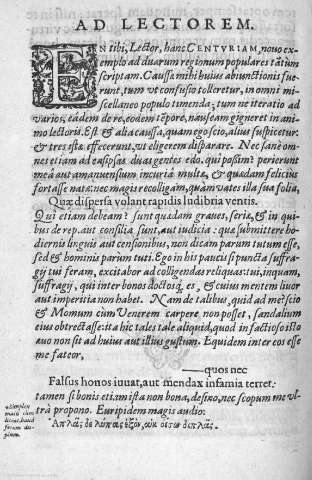 AD LECTOREM.
EN tibi, Lector, hanc CENTVRIAM, nouo ex-
emplo ad duarum regionum populares tãtùm
scriptam. Caussa mihi huius abiunctionis fue-
runt, tum vt confusio tolleretur, in omni mi-
scellaneo populo timenda; tum ne iteratio ad
varios, eâdem de re, eodem tẽpore, nauseam gigneret in ani-
mo lectoris. Est & alia caussa, quam ego scio, alius suspicetur:
& tres istæ effecerunt, vt eligerem disparare. Nec sanè om-
nes etiam ad eas ipsas duas gentes edo, qui possim? perierunt
meâ aut amanuensium incuriâ multæ, & quædam felicius
fortasse natæ: nec magis recolligam, quàm vates illa sua folia,
Quæ dispersa volant rapidis ludibria ventis.
Qui etiam debeam? sunt quædam graues, seriæ, & in qui-
bus de rep. aut consilia sunt, aut iudicia: quæ submittere ho-
diernis linguis aut censionibus, non dicam parum tutum esse,
sed & hominis parum tuti. Ego in his paucis si puncta suffra-
gij tui feram, excitabor ad colligendas reliquas: tui, inquam,
suffragij, qui inter bonos doctosq́, es, & cuius mentem liuor
aut imperitia non habet. Nam de talibus, quid ad me? scio
& Momum cùm Venerem carpere non posset, sandalium
eius obtrectasse: ita hic tales tale aliquid, quod in factioso isto
æuo non sit ad huius aut illius gustum. Equidem inter eos esse
me fateor,
—quos nec
Falsus honos iuuat, aut mendax infamia terret:
tamen si bonis etiam ista non bona, desino, nec scopum me vl-
trà propono. Euripidem magis audio:
Ἁπλᾶς δὲ λύπας ἐξὸν, οὐκ οἴσω διπλᾶς.